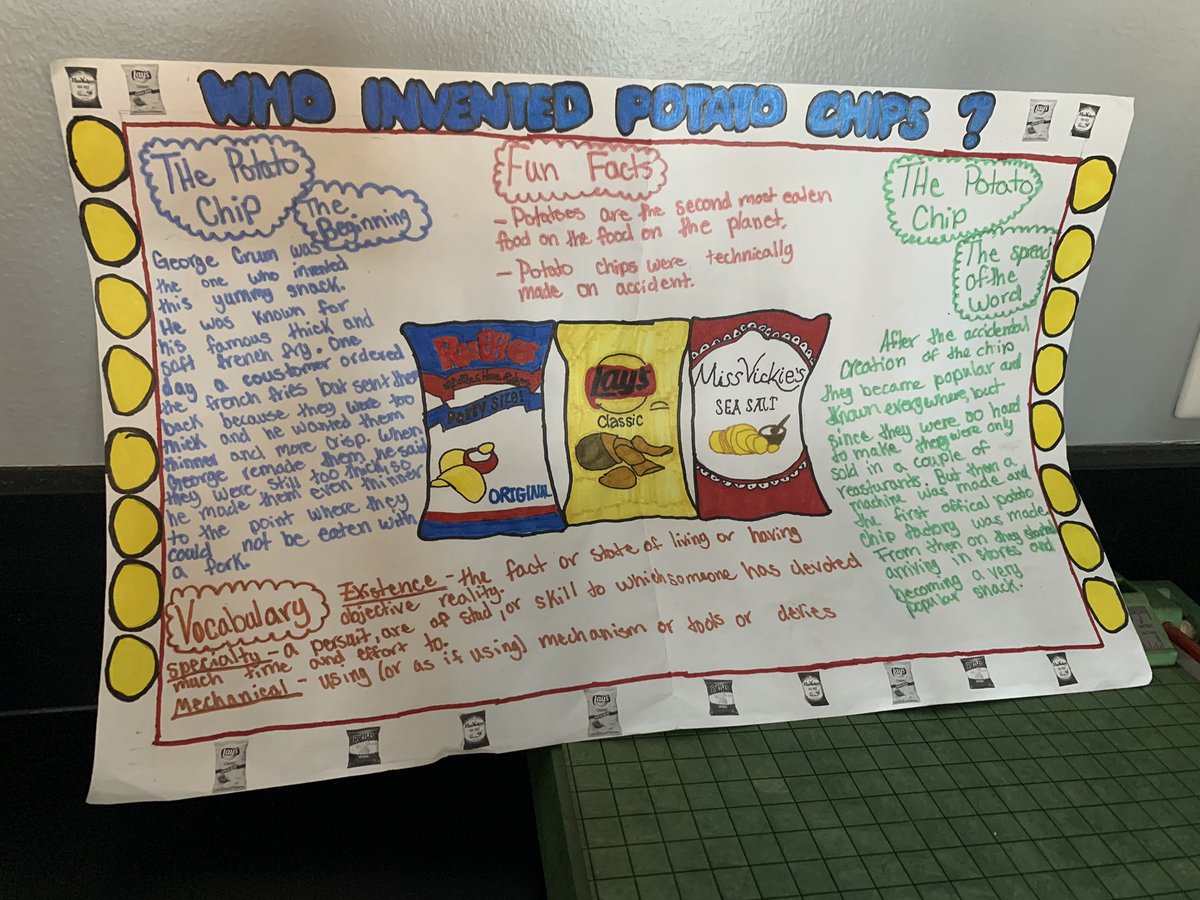 WHO INVENTED POTATO CHIPS ?
THe Potato
Chip
The
Beginning
George Crum was
the one who invented
this yummy snack.
He was known for
his famous thick and
saft french fry. One
day a coustomer ordered
the french fries but sent them
back because they were too
thick and he wanted them
thinner and more crisp. When
George remade them, he said
they were still too thick, so
he made them even thinner
to the point where they
could not be eaten with
a fork.
Fun Facts
- Potatoes are the second most eaten
food on the food on the planet.
- Potato chips were technically
made on accident.
Ruffles
Ruffles Have Ridges
Party Size!
ORIGINAL
Lay's
Classic
Miss Vickie's
SEA SALT
THe Potato
Chip
The spread
of the
word
After the accidental
creation of the chip
they became popular and
known everywhere, but
since they were so hard
to make they were only
sold in a couple of
reasturants. But then a
machine was made and
the first offical potato
chip factory was made.
From then on they started
arriving in stores and
becoming a very
popular snack.
Vocabulary
Existence - the fact or state of living or having
objective reality.
specialty - a persuit, are of stud, or skill to which someone has devoted
much time and effort to.
Mechanical - using (or as if using) mechanism or tools or devies
Lay's
Lay's
Lay's
Lay's
Lay's